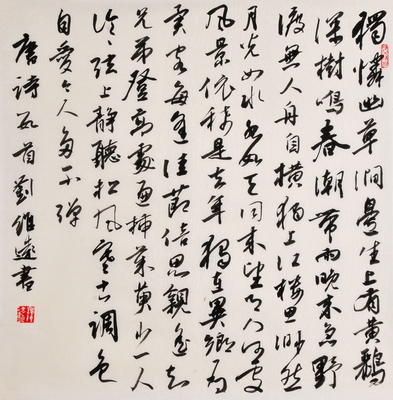 獨憐幽草澗邊生上有黃鸝
深樹鳴春潮帶雨晚來急野
渡無人舟自橫獨上江樓思渺然
月光如水水如天同來望月人何處
風景依稀是去年獨在異鄉為
異客每逢佳節倍思親遙知
兄弟登高處遍插茱萸少一人
泠泠弦上靜聽松風寒古調雖
自愛今人多不彈
唐詩首劉維遠書